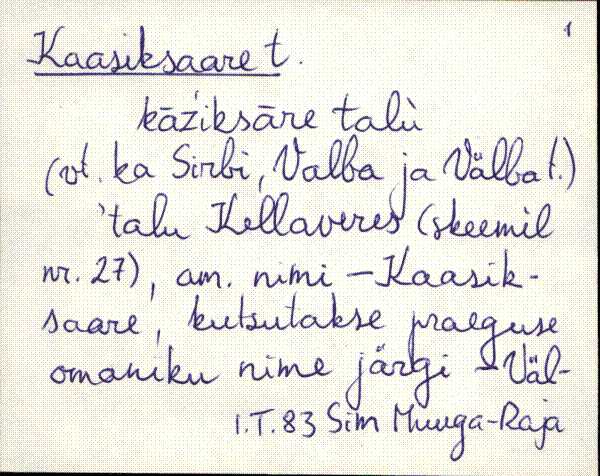 1
Kaasiksaare t.
kāźiksāre talù
(vt. ka Sirbi, Valba ja Välba t.)
'talu Kellaveres (skeemil
nr. 27), am. nimi – Kaasik-
saare, kutsutakse praeguse
omaniku nime järgi – Väl-
I.T. 83 Sim Muuga-Raja